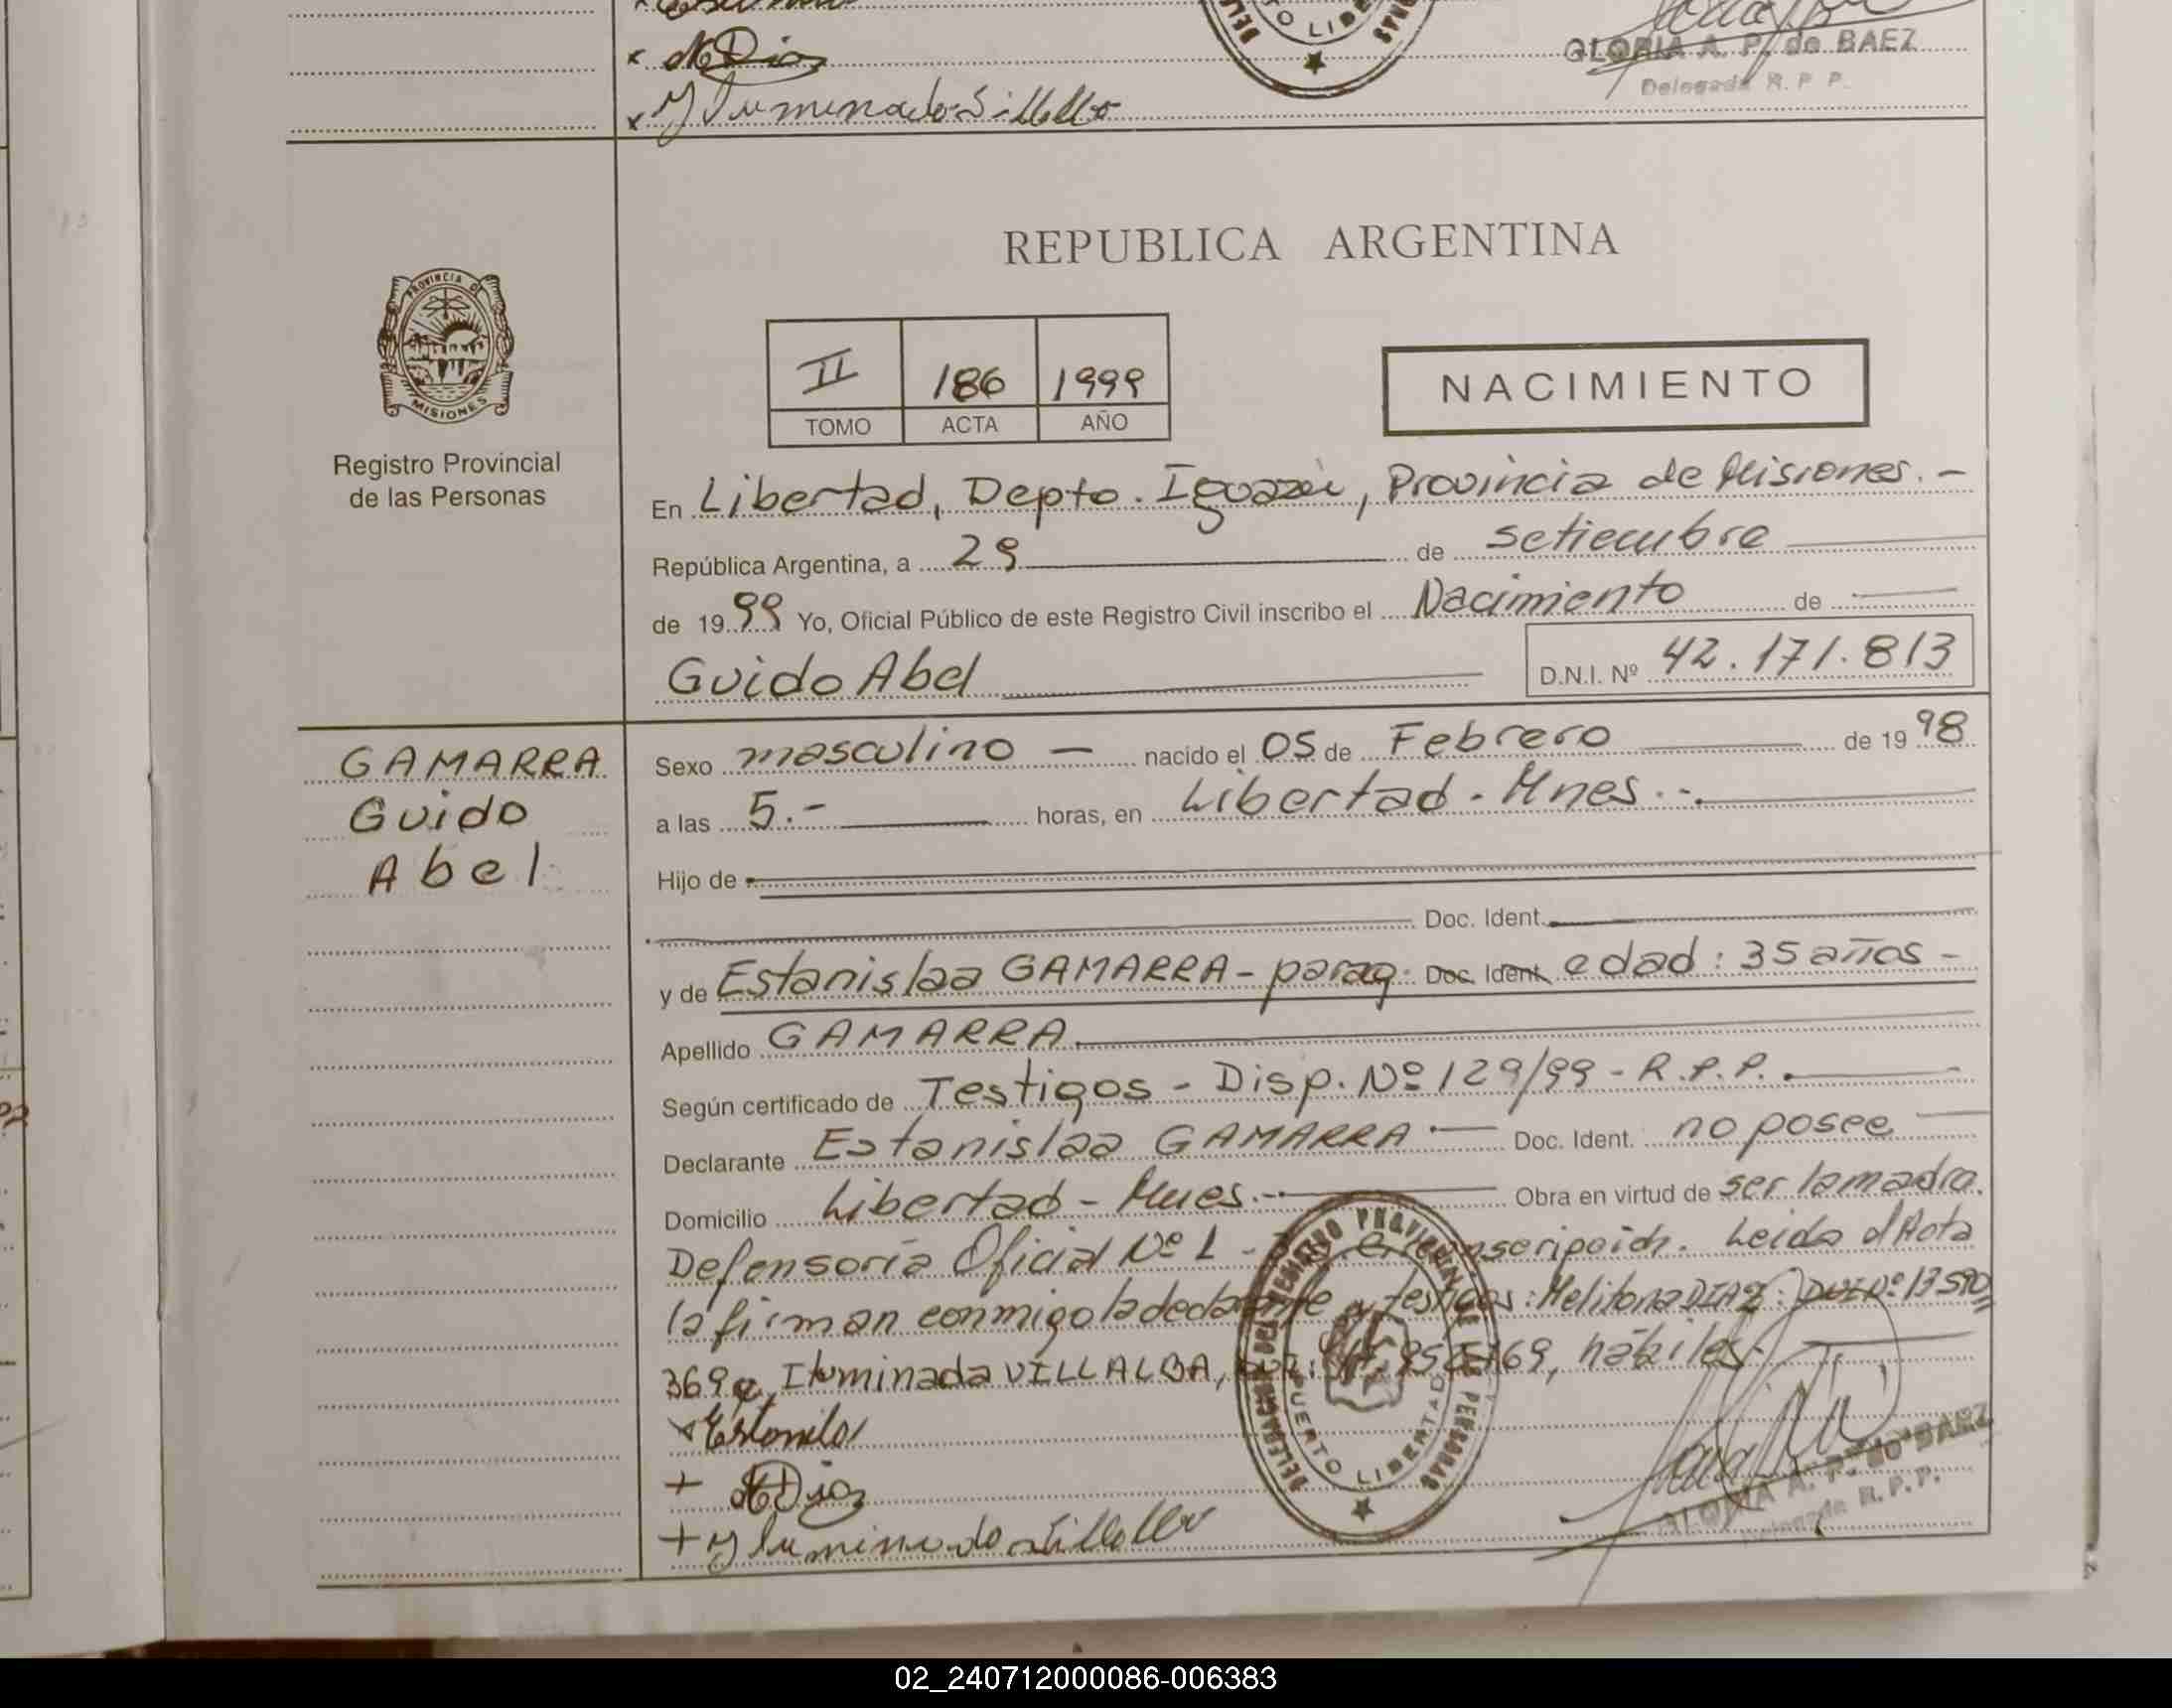 DiaZ
GLORIA A. P. de BAEZ
Delegada R. P. P.
REPUBLICA ARGENTINA
PROVINCIA DE
MISIONES
Registro Provincial
de las Personas
II 186 1999
TOMO ACTA AÑO
NACIMIENTO
En Libertad, Depto. Iguazú, Provincia de Misiones.-
República Argentina, a 29 de setiembre
de 1999 Yo, Oficial Público de este Registro Civil inscribo el Nacimiento de
Guido Abel
D.N.I. Nº 42.171.813
GAMARRA
Guido
Abel
Sexo masculino - nacido el 05 de Febrero de 1998
a las 5.- horas, en Libertad - Mnes.-
Hijo de
Doc. Ident.
y de Estanislaa GAMARRA - parag. Doc. Ident. edad: 35 años -
Apellido GAMARRA
Según certificado de Testigos - Disp. Nº 129/99 - R.P.P.
Declarante Estanislaa GAMARRA - Doc. Ident. no posee
Domicilio Libertad - Mnes.- Obra en virtud de ser la madre.
Defensoría Oficial Nº 1 - Leida el Acta
la firman conmigo la declarante y testigos: Melitona DIAZ: DNI Nº 13590
369 e, Iluminada VILLALBA, hábiles.
DELEGACION DEL REGISTRO PROVINCIAL DE LAS PERSONAS
PUERTO LIBERTAD
Diaz
GLORIA A. P. de BAEZ
Delegada R. P. P.
02_240712000086-006383